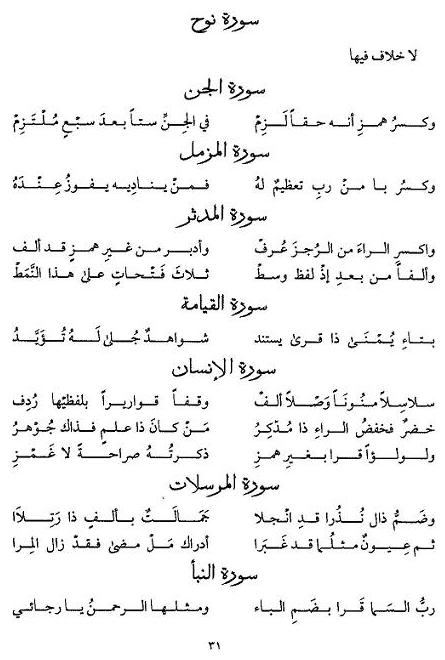 سورة نوح
لا خلاف فيها
سورة الجن
وكسرُ همزِ أنه حقاً لَزِمْ في الجِنِّ ستاً بعدَ سبْعٍ مُلْتَزِمْ
سورة المزمل
وكسرُ با منْ ربِ تعظيمٌ لهُ فمنْ يناديه يفوزُ عِنْدَهُ
سورة المدثر
واكسرِ الراءَ من الرُجزَ عُرفْ وأدبر من غيرِ همزٍ قد ألف
وألفاً من بعدِ إذْ لفظ وسطْ ثلاثَ فَتْحاتٍ على هذا النَّمَطْ
سورة القيامة
بتاءِ يُمْنَىٰ ذا قرىء يستند شواهدٌ جُلىٰ لَهُ تُؤَيَّدُ
سورة الإنسان
سلاسِلاً منُوناً وَصْلاً ألفْ وقفاً قواريراً بلفظيْها رُدِف
خضرٌ فخفضُ الراءِ ذا مُدْكِرُ مَنْ كانَ ذا علمٍ فذاكَ جُوْهَرُ
ولولؤاً قرا بغيرِ همزِ ذكرتُهُ صراحةً لا غَمْزِ
سورة المرسلات
وضَمُّ ذال نُذُرا قدِ انْجلا جَمَالَتٌ بألفٍ ذا رَتِلَاا
ثم عِيونٌ مثلُما قد غَبَرا أدراك مَلْ مضىٰ فقدْ زال المِرا
سورة النبأ
ربُّ السما قَرا بضَمِ الباء ومثلها الرحمنُ يا رجائي
٣١